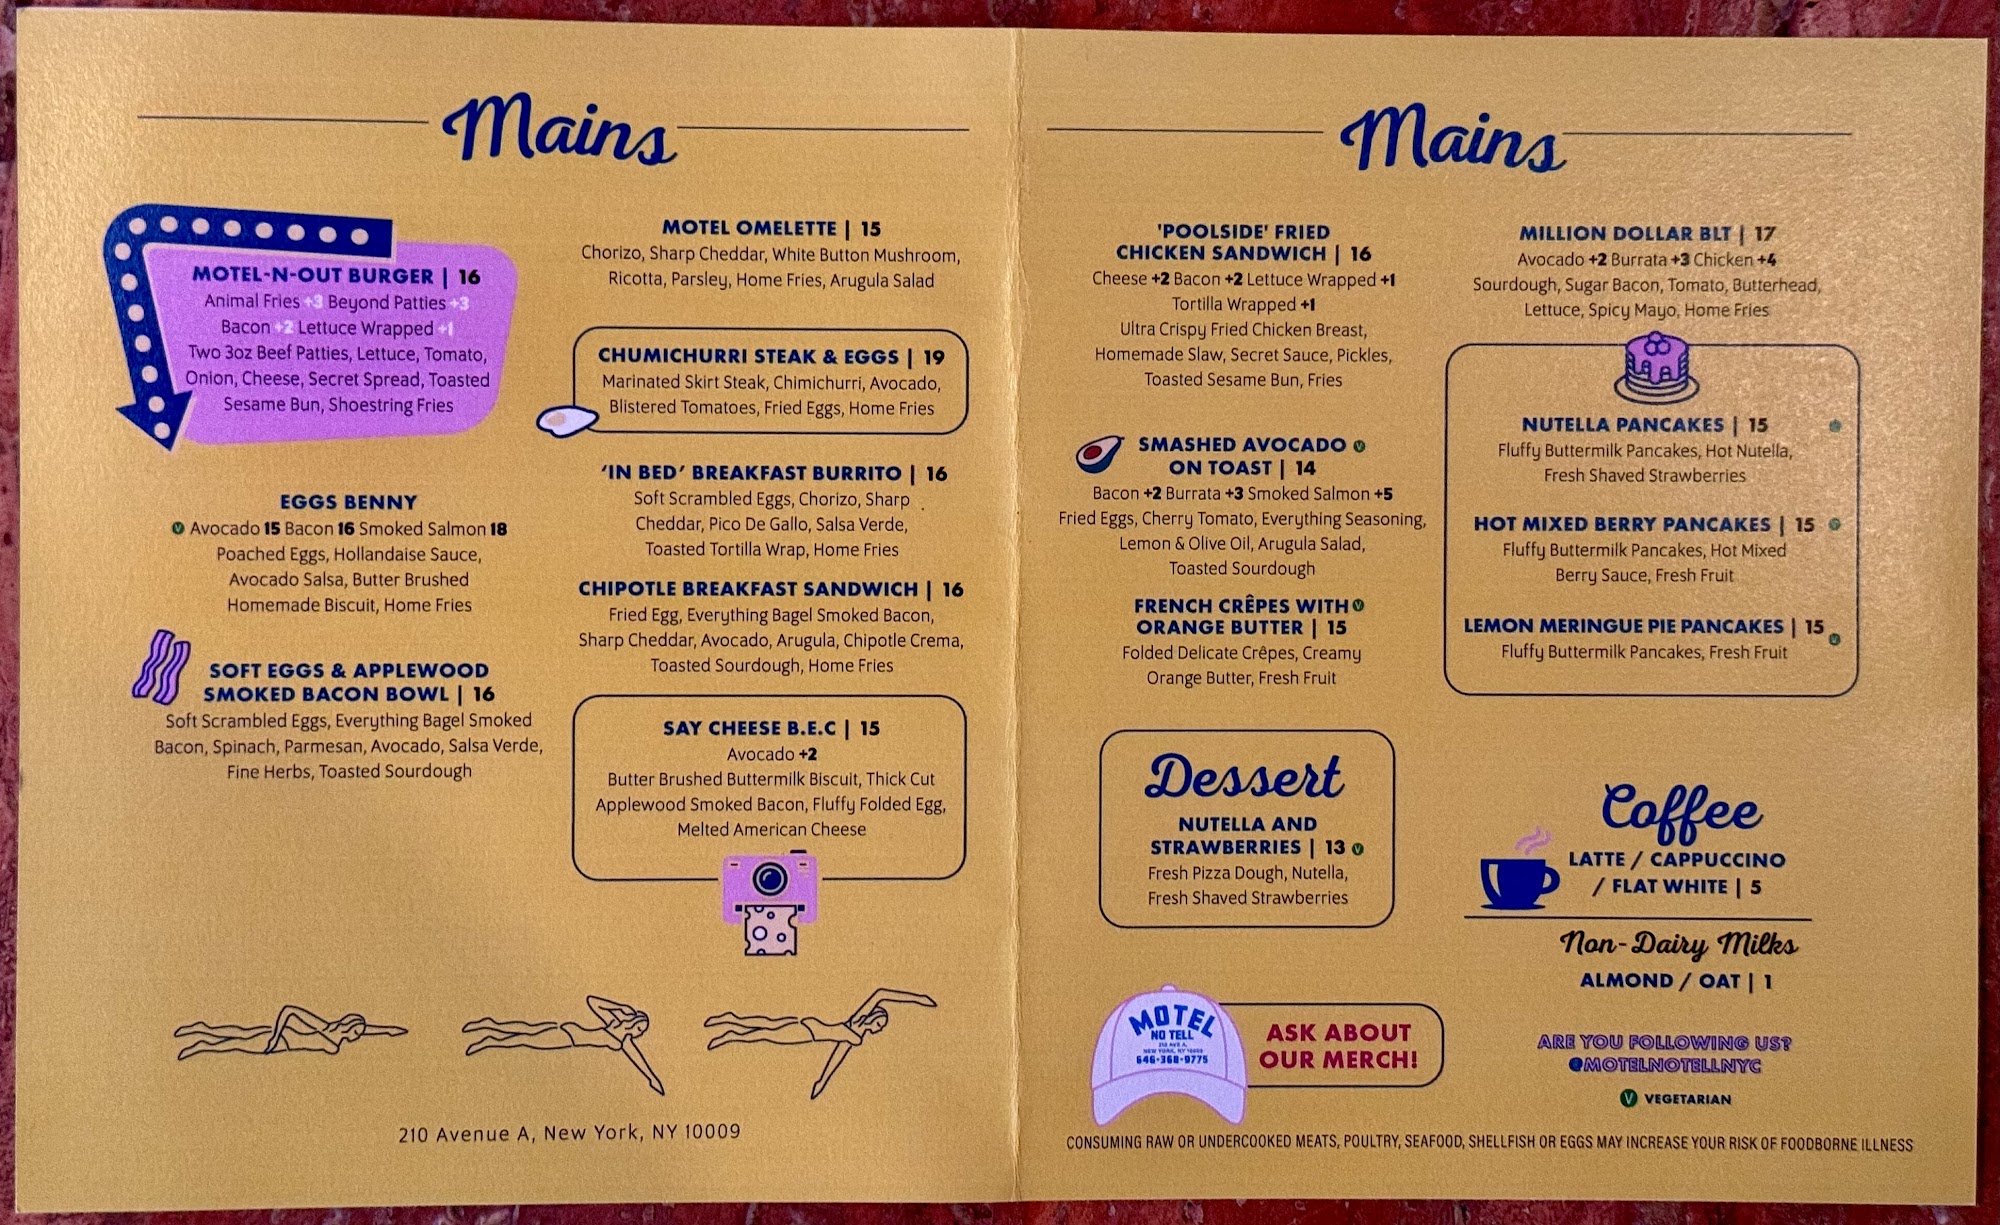 Mains
MOTEL-N-OUT BURGER | 16
Animal Fries +3 Beyond Patties +3
Bacon +2 Lettuce Wrapped +1
Two 3oz Beef Patties, Lettuce, Tomato,
Onion, Cheese, Secret Spread, Toasted
Sesame Bun, Shoestring Fries
EGGS BENNY
V Avocado 15 Bacon 16 Smoked Salmon 18
Poached Eggs, Hollandaise Sauce,
Avocado Salsa, Butter Brushed
Homemade Biscuit, Home Fries
SOFT EGGS & APPLEWOOD
SMOKED BACON BOWL | 16
Soft Scrambled Eggs, Everything Bagel Smoked
Bacon, Spinach, Parmesan, Avocado, Salsa Verde,
Fine Herbs, Toasted Sourdough
MOTEL OMELETTE | 15
Chorizo, Sharp Cheddar, White Button Mushroom,
Ricotta, Parsley, Home Fries, Arugula Salad
CHUMICHURRI STEAK & EGGS | 19
Marinated Skirt Steak, Chimichurri, Avocado,
Blistered Tomatoes, Fried Eggs, Home Fries
'IN BED' BREAKFAST BURRITO | 16
Soft Scrambled Eggs, Chorizo, Sharp
Cheddar, Pico De Gallo, Salsa Verde,
Toasted Tortilla Wrap, Home Fries
CHIPOTLE BREAKFAST SANDWICH | 16
Fried Egg, Everything Bagel Smoked Bacon,
Sharp Cheddar, Avocado, Arugula, Chipotle Crema,
Toasted Sourdough, Home Fries
SAY CHEESE B.E.C | 15
Avocado +2
Butter Brushed Buttermilk Biscuit, Thick Cut
Applewood Smoked Bacon, Fluffy Folded Egg,
Melted American Cheese
210 Avenue A, New York, NY 10009
Mains
'POOLSIDE' FRIED
CHICKEN SANDWICH | 16
Cheese +2 Bacon +2 Lettuce Wrapped +1
Tortilla Wrapped +1
Ultra Crispy Fried Chicken Breast,
Homemade Slaw, Secret Sauce, Pickles,
Toasted Sesame Bun, Fries
SMASHED AVOCADO V
ON TOAST | 14
Bacon +2 Burrata +3 Smoked Salmon +5
Fried Eggs, Cherry Tomato, Everything Seasoning,
Lemon & Olive Oil, Arugula Salad,
Toasted Sourdough
FRENCH CRÊPES WITH V
ORANGE BUTTER | 15
Folded Delicate Crêpes, Creamy
Orange Butter, Fresh Fruit
Dessert
NUTELLA AND
STRAWBERRIES | 13 V
Fresh Pizza Dough, Nutella,
Fresh Shaved Strawberries
MOTEL
NO TELL
210 AVE A,
NEW YORK, NY 10009
646-368-9775
ASK ABOUT
OUR MERCH!
MILLION DOLLAR BLT | 17
Avocado +2 Burrata +3 Chicken +4
Sourdough, Sugar Bacon, Tomato, Butterhead,
Lettuce, Spicy Mayo, Home Fries
NUTELLA PANCAKES | 15 V
Fluffy Buttermilk Pancakes, Hot Nutella,
Fresh Shaved Strawberries
HOT MIXED BERRY PANCAKES | 15 V
Fluffy Buttermilk Pancakes, Hot Mixed
Berry Sauce, Fresh Fruit
LEMON MERINGUE PIE PANCAKES | 15 V
Fluffy Buttermilk Pancakes, Fresh Fruit
Coffee
LATTE / CAPPUCCINO
/ FLAT WHITE | 5
Non-Dairy Milks
ALMOND / OAT | 1
ARE YOU FOLLOWING US?
@MOTELNOTELLNYC
V VEGETARIAN
CONSUMING RAW OR UNDERCOOKED MEATS, POULTRY, SEAFOOD, SHELLFISH OR EGGS MAY INCREASE YOUR RISK OF FOODBORNE ILLNESS